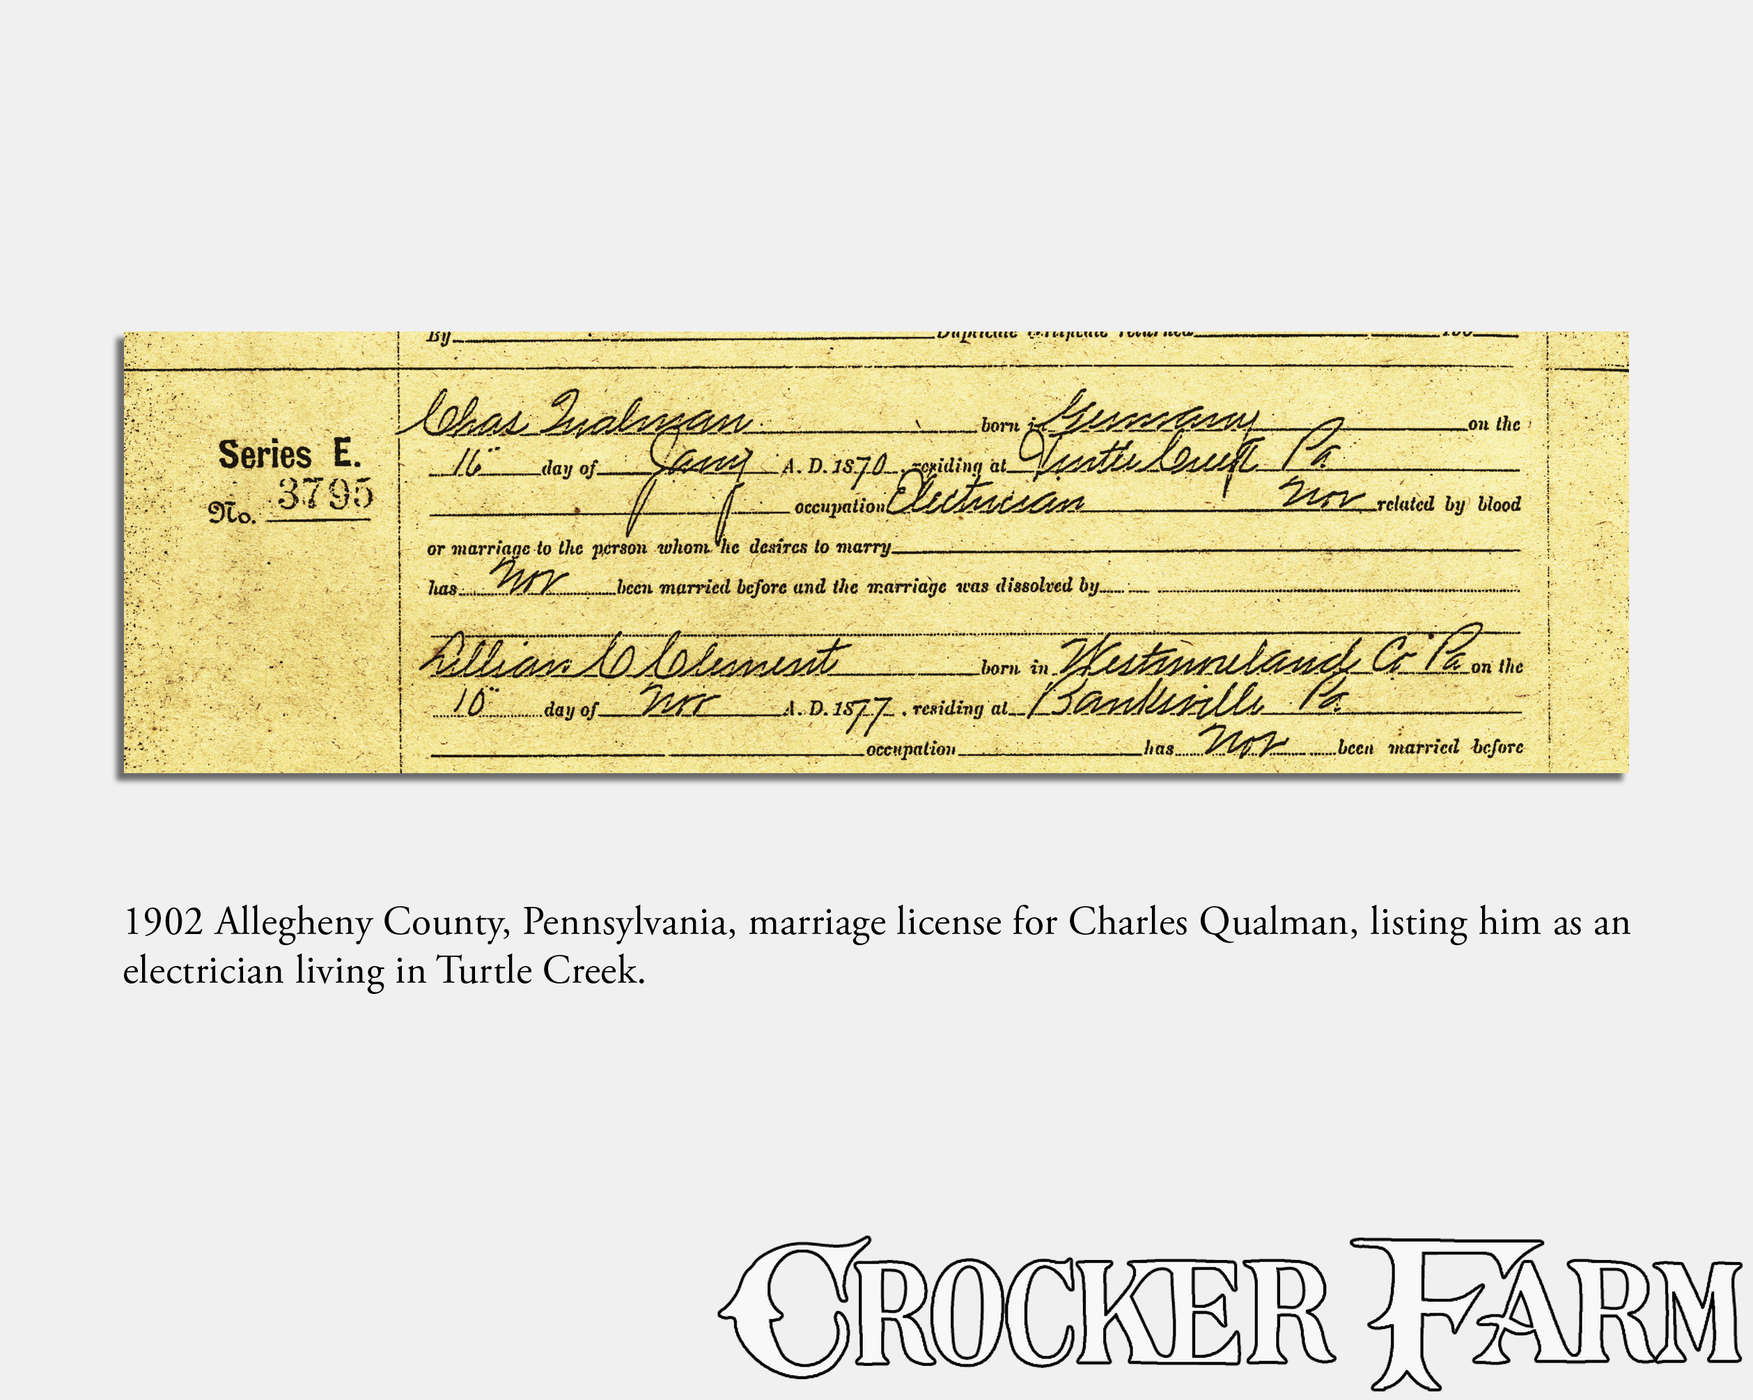 By
Duplicate Certificate returned 190
Series E.
No. 3795
Chas Qualman born in Germany on the
16" day of Jany A. D. 1870, residing at Turtle Creek Pa
occupation Electrician Not related by blood
or marriage to the person whom he desires to marry
has Not been married before and the marriage was dissolved by
Lillian C Clement born in Westmoreland Co Pa on the
10" day of Nov A. D. 1877, residing at Banksville Pa
occupation has Not been married before
1902 Allegheny County, Pennsylvania, marriage license for Charles Qualman, listing him as an
electrician living in Turtle Creek.
CROCKER FARM